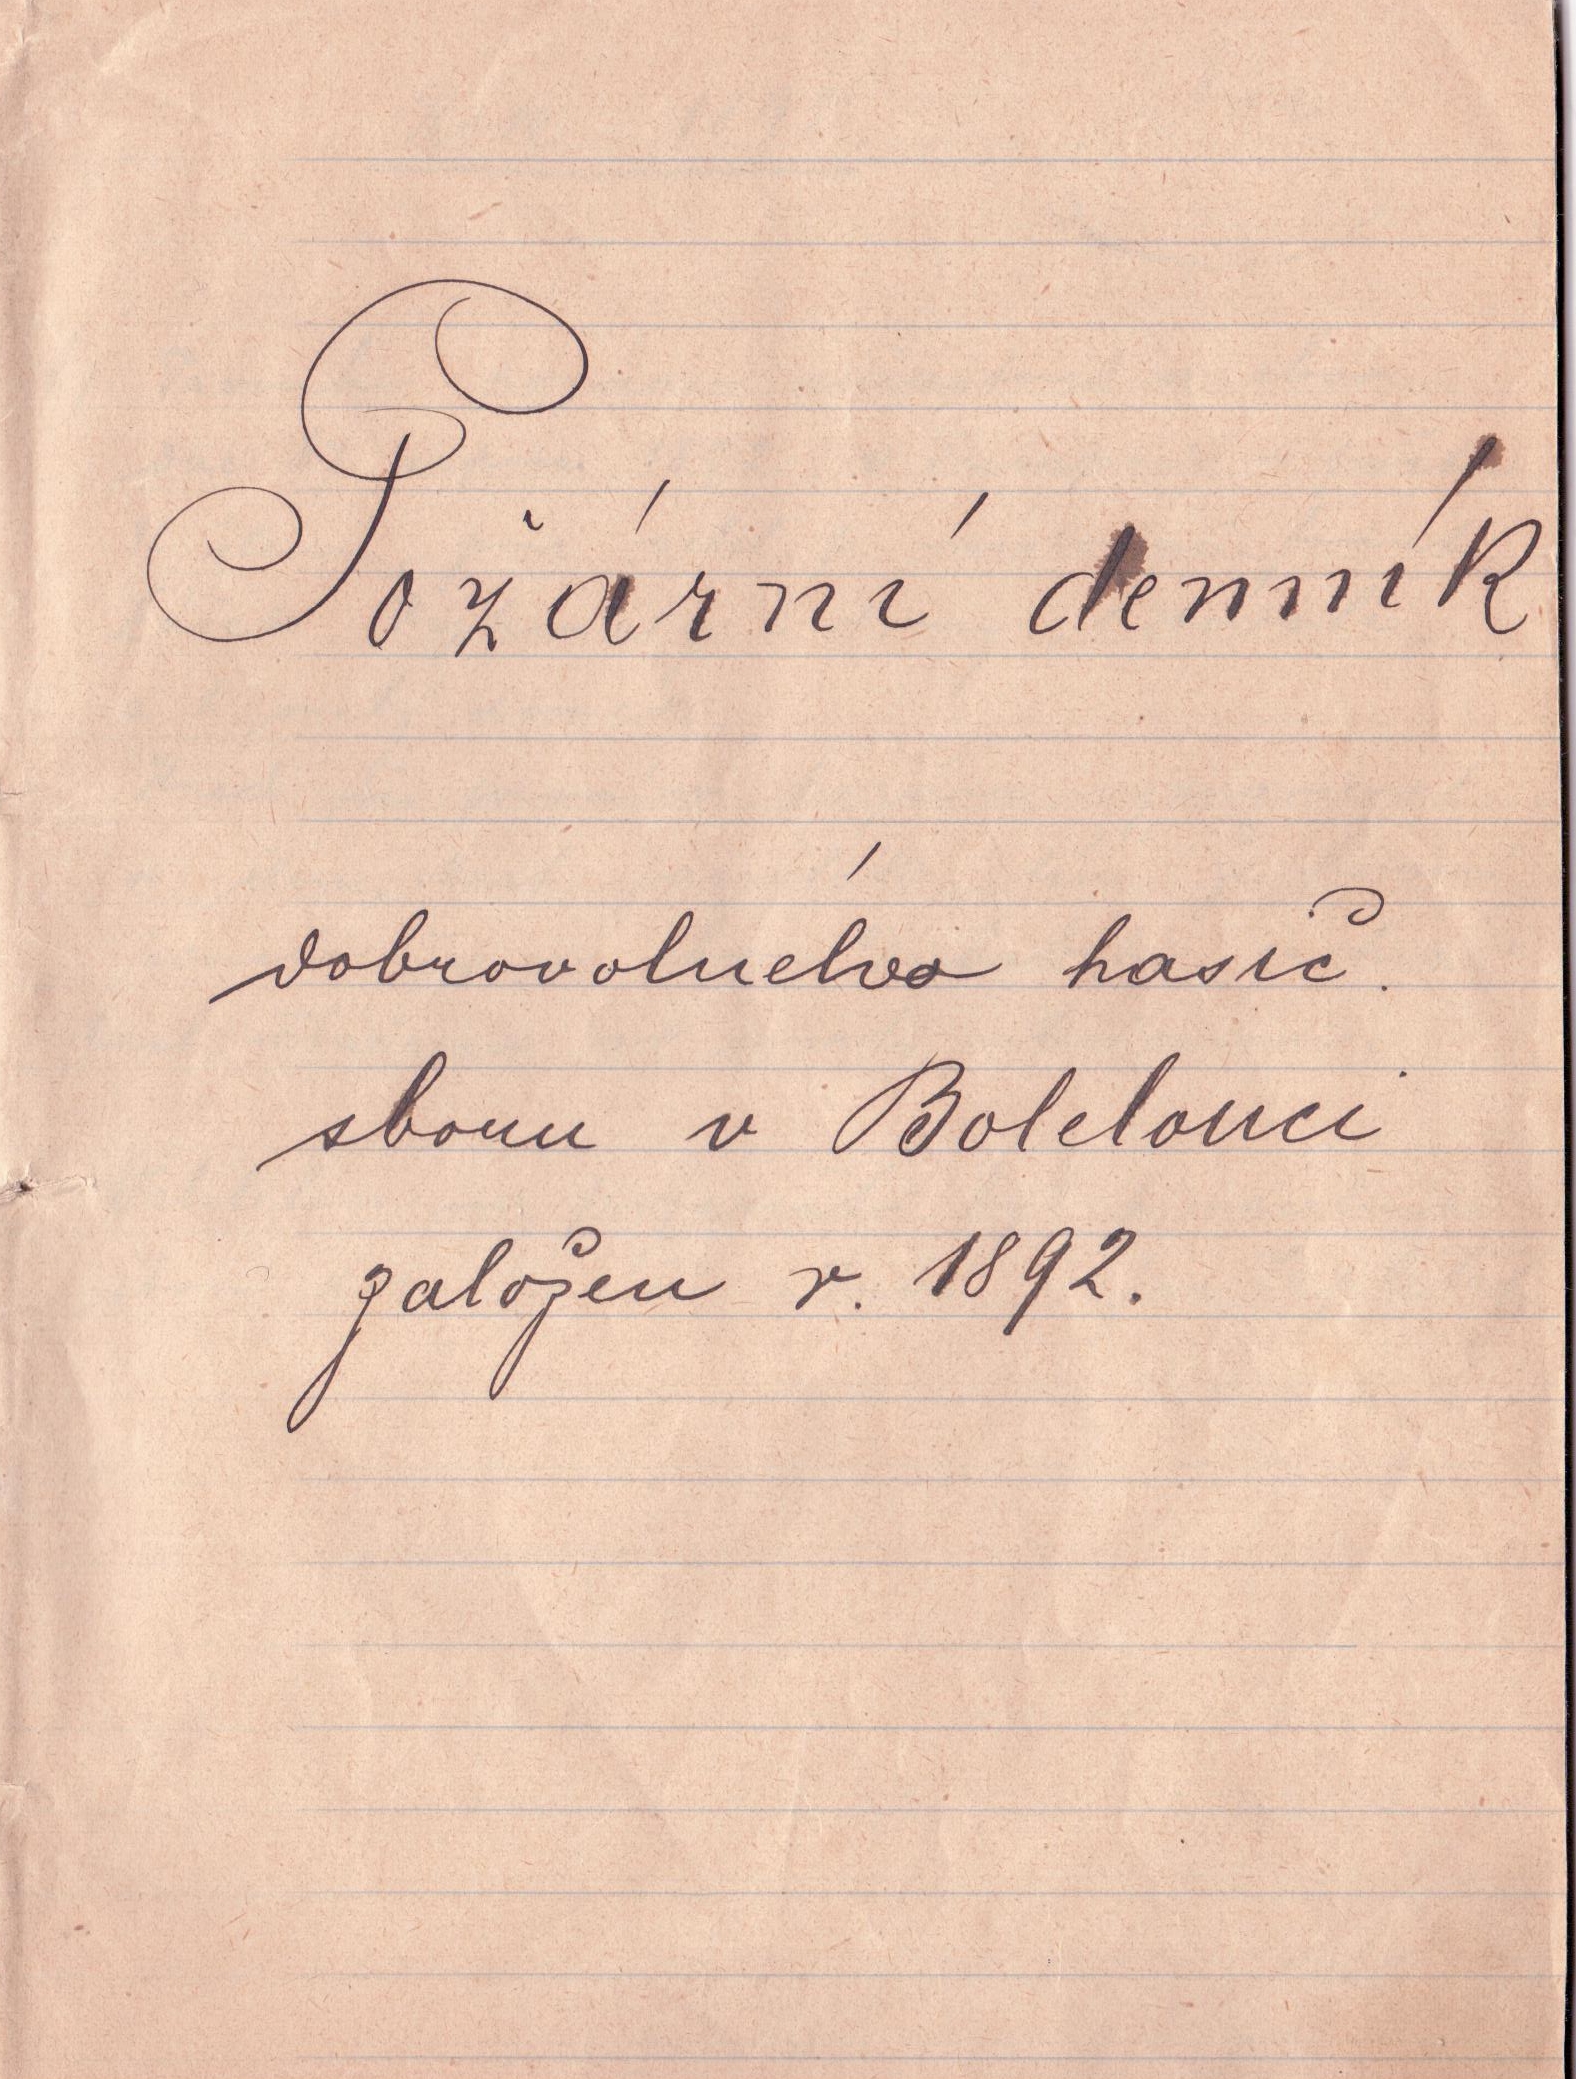 Požární denník
dobrovolného hasič.
sboru v Bolelouci
založen r. 1892.